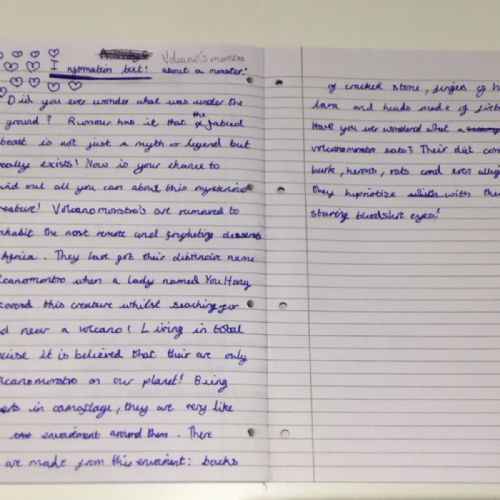 Volcano's monstro
Information text! about a monster!
Did you ever wonder what was under the
ground? Rumour has it that the fabled
beast is not just a myth or legend but
really exists! Now is your chance to
find out all you can about this mysterious
creature! Volcanomonstro's are rumoured to
inhabit the most remote and
Africa. They have got their distinctive name
canomonstro when a lady named You Hang
covered this creature whilst seaching for
near a volcano! Living in total
it is believed that their are only
lcanomonstro on our planet! Being
in camoflage, they are very like
enviroment around them. There
are made from this enviroment: backs
of cracked stone, fingers of h
lava and heads made of
Have you ever wondered what a
volcanomonstro eats? Their diet con
bark, herons, rats and even
they hypnotize with the
staring bloodshot eyes!